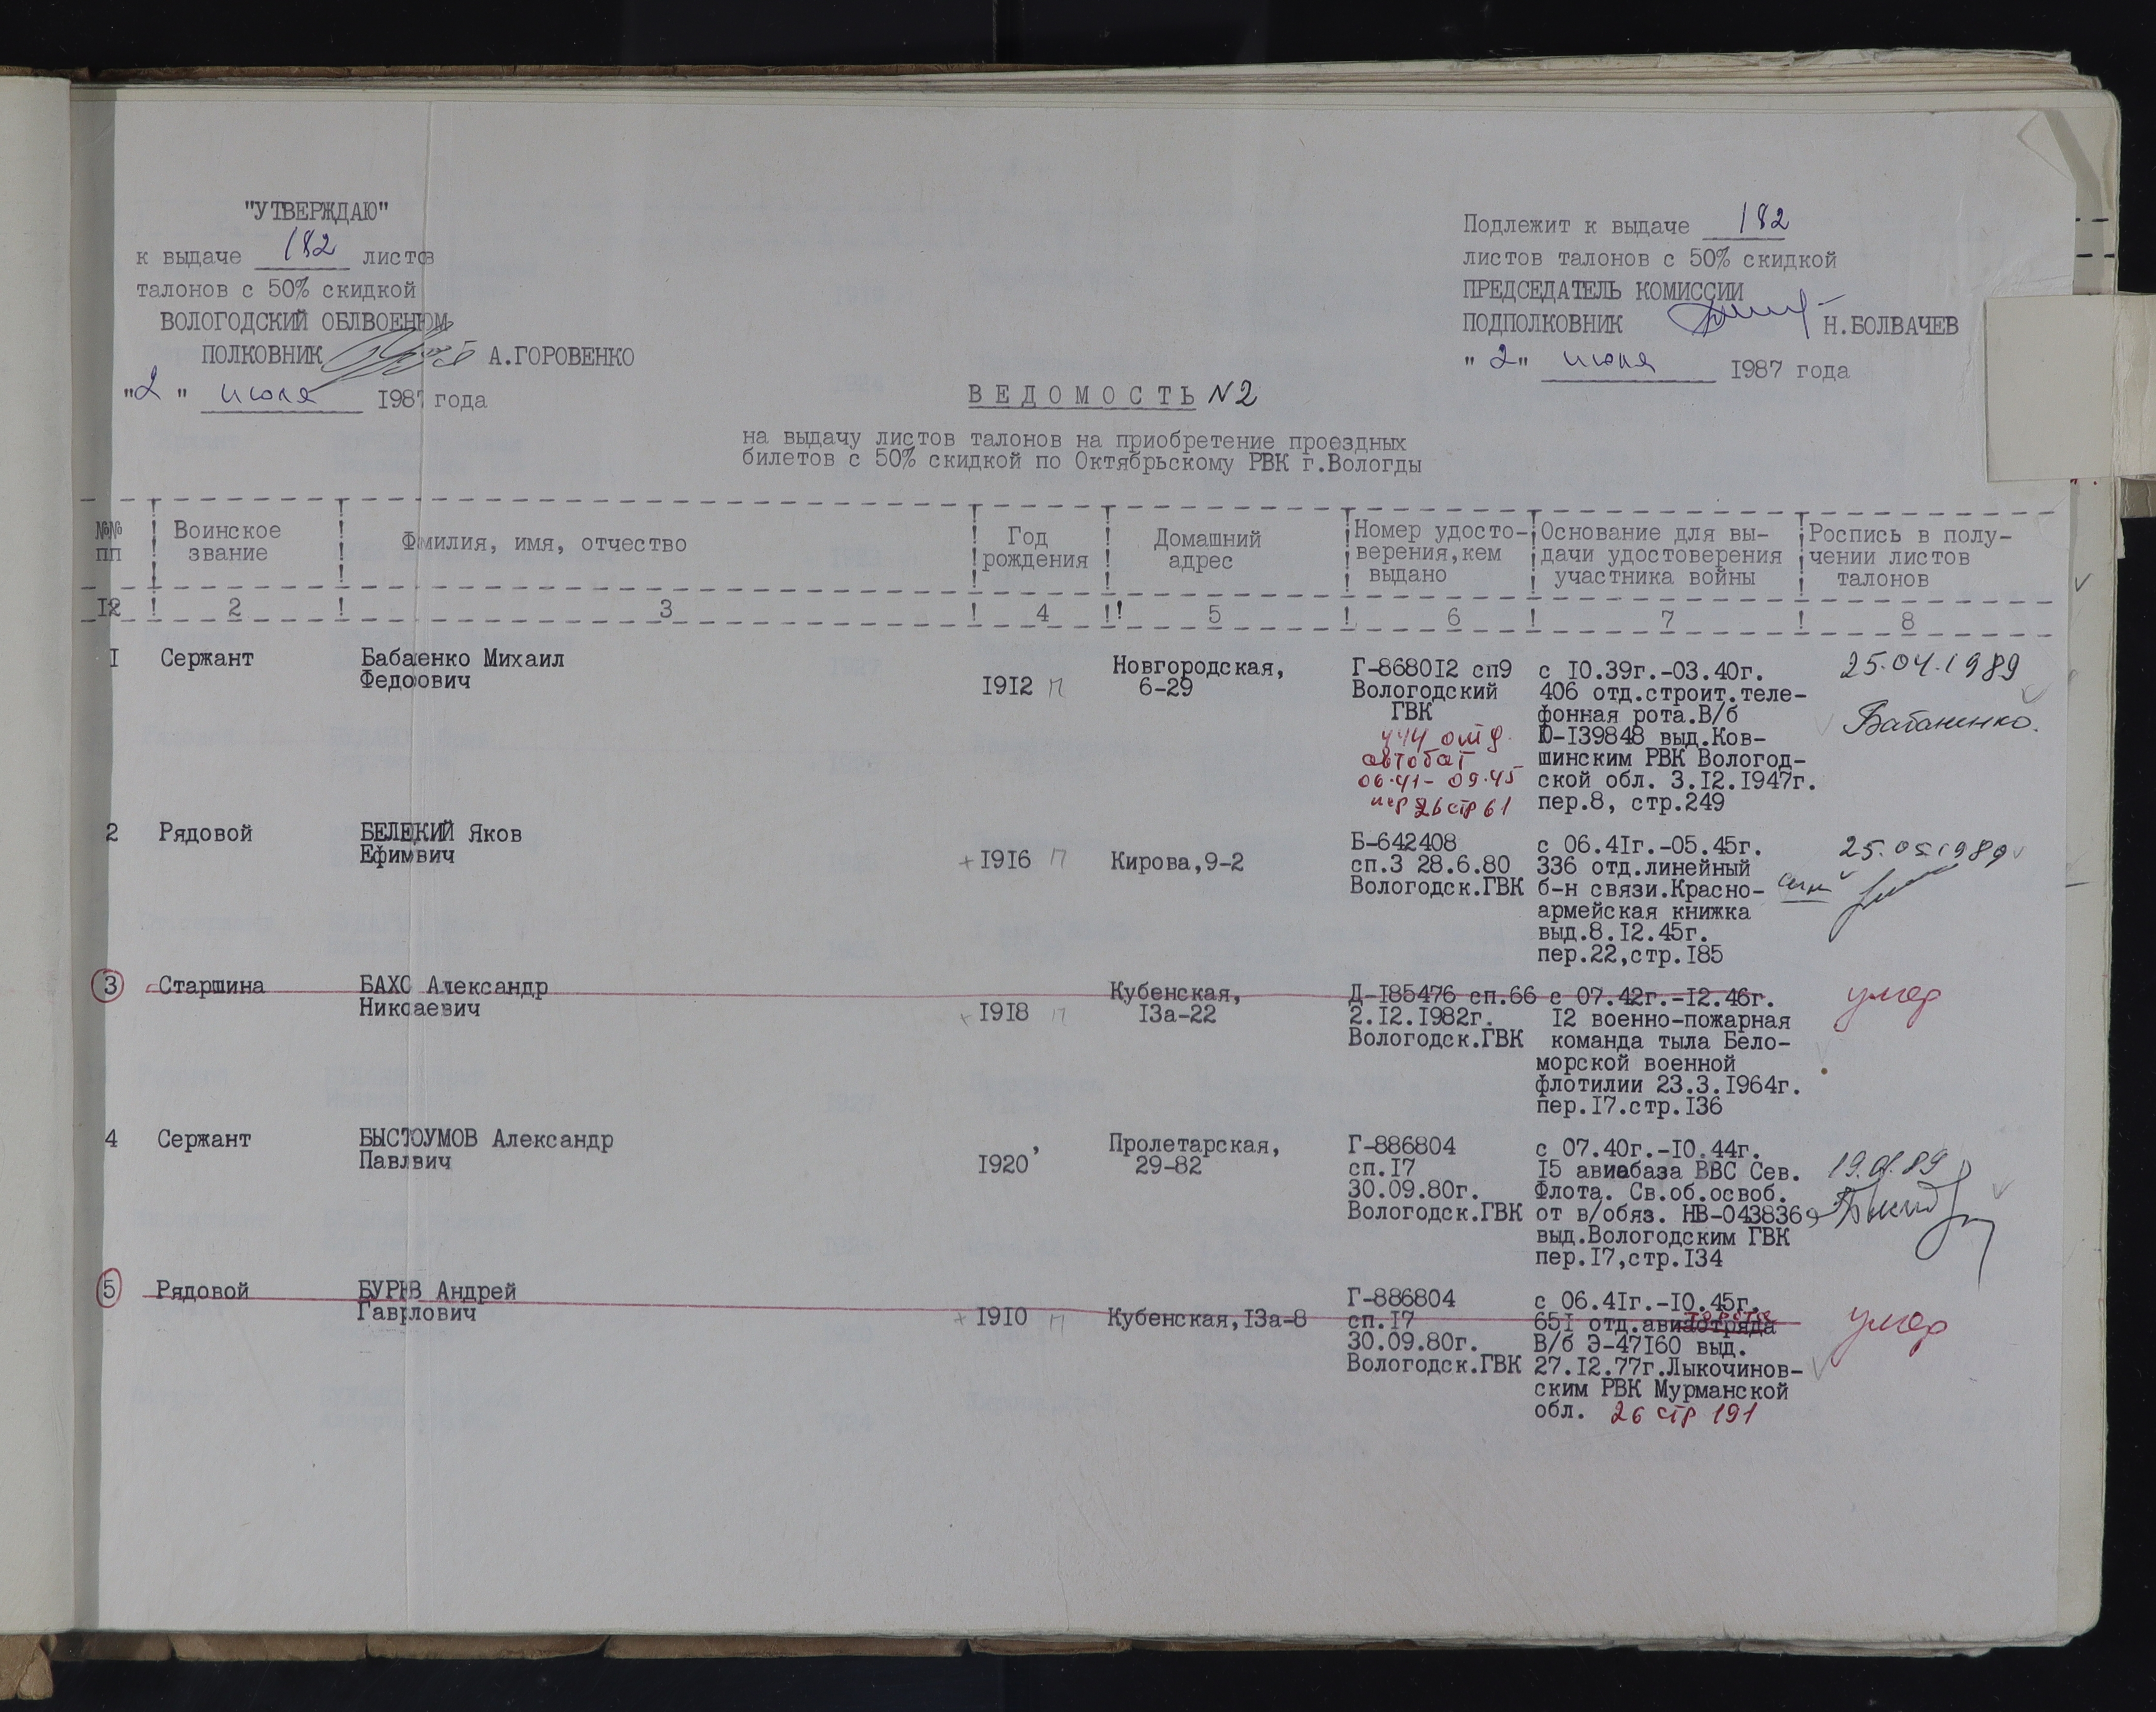 "УТВЕРЖДАЮ"
к выдаче 182 листов
талонов с 50% скидкой
ВОЛОГОДСКИЙ ОБЛВОЕНКОМ
ПОЛКОВНИК А.ГОРОВЕНКО
"2" июля 1987 года
Подлежит к выдаче 182
листов талонов с 50% скидкой
ПРЕДСЕДАТЕЛЬ КОМИССИИ
ПОДПОЛКОВНИК Н.БОЛВАЧЕВ
"2" июля 1987 года
ВЕДОМОСТЬ N2
на выдачу листов талонов на приобретение проездных
билетов с 50% скидкой по Октябрьскому РВК г.Вологды
№№ пп
Воинское звание
Фамилия, имя, отчество
Год рождения
Домашний адрес
Номер удосто-
верения,кем
выдано
Основание для вы-
дачи удостоверения
участника войны
Роспись в полу-
чении листов
талонов
2 3 4 5 6 7 8
1 Сержант
Михаил
1912 П
Новгородская,
6-29
Г-868012 сп9
Вологодский
ГВК
444 отд.
автобат
06.41- 09.45
пер 26 стр 61
с 10.39г.-03.40г.
406 отд.строит.теле-
фонная рота.В/б
Ю-139848 выд.Ков-
шинским РВК Вологод-
ской обл. 3.12.1947г.
пер.8, стр.249
25.04.1989
2 Рядовой
Яков
1916 П
Кирова,9-2
Б-642408
сп.3 28.6.80
Вологодск.ГВК
с 06.41г.-05.45г.
336 отд.линейный
б-н связи.Красно-
армейская книжка
выд.8.12.45г.
пер.22,стр.185
25.05.1989
3 Старшина
Александр
1918 П
Кубенская,
13а-22
Д-185476 сп.66
2.12.1982г.
Вологодск.ГВК
с 07.42г.-12.46г.
12 военно-пожарная
команда тыла Бело-
морской военной
флотилии 23.3.1964г.
пер.17.стр.136
умер
4 Сержант
Александр
1920
Пролетарская,
29-82
Г-886804
сп.17
30.09.80г.
Вологодск.ГВК
с 07.40г.-10.44г.
15 авиабаза ВВС Сев.
Флота. Св.об.освоб.
от в/обяз. НВ-0438369
выд.Вологодским ГВК
пер.17,стр.134
5 Рядовой
Андрей
1910 П
Кубенская,13а-8
Г-886804
сп.17
30.09.80г.
Вологодск.ГВК
с 06.41г.-10.45г.
651 отд.авиаотряда
В/б Э-47160 выд.
27.12.77г.Лыкочинов-
ским РВК Мурманской
обл. 26 стр 191
умер